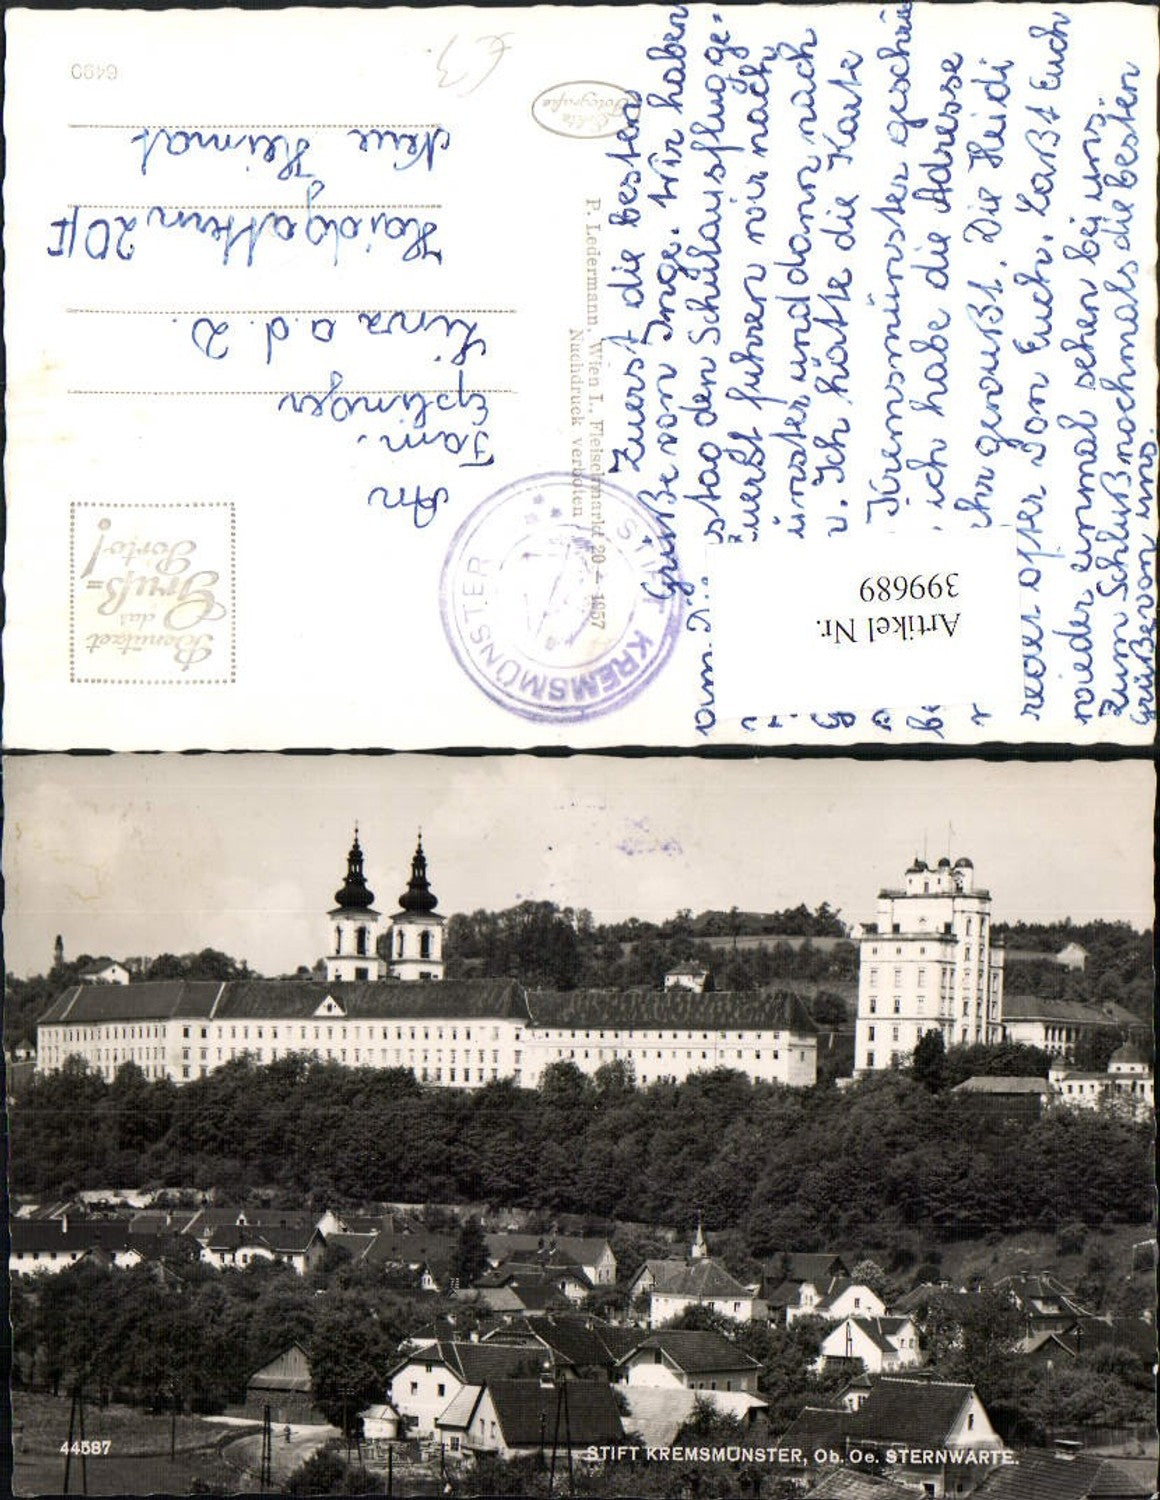 6499
€3.
Echte
Fotografie
An
Fam.
Linz a. d. D.
Haidgattern 20/F
Neue Heimat
Benützet
das
Gruß=
Porto!
P. Ledermann, Wien I., Fleischmarkt 20 — 1957
Nachdruck verboten
STIFT KREMSMÜNSTER
Zuerst die besten
Grüße von Inge. Wir haben
den Schulausflug ge-
Zuerst fuhren wir nach
ünster und dann nach
Ich hätte die Karte
Kremsmünster
ich habe die Adresse
gewußt. Die Heidi
redet öfter von Euch. Laßt Euch
wieder einmal sehen bei uns.
Zum Schluß nochmals die besten
Grüße von uns.
Artikel Nr.
399689
44587
STIFT KREMSMÜNSTER, Ob. Oe. STERNWARTE.